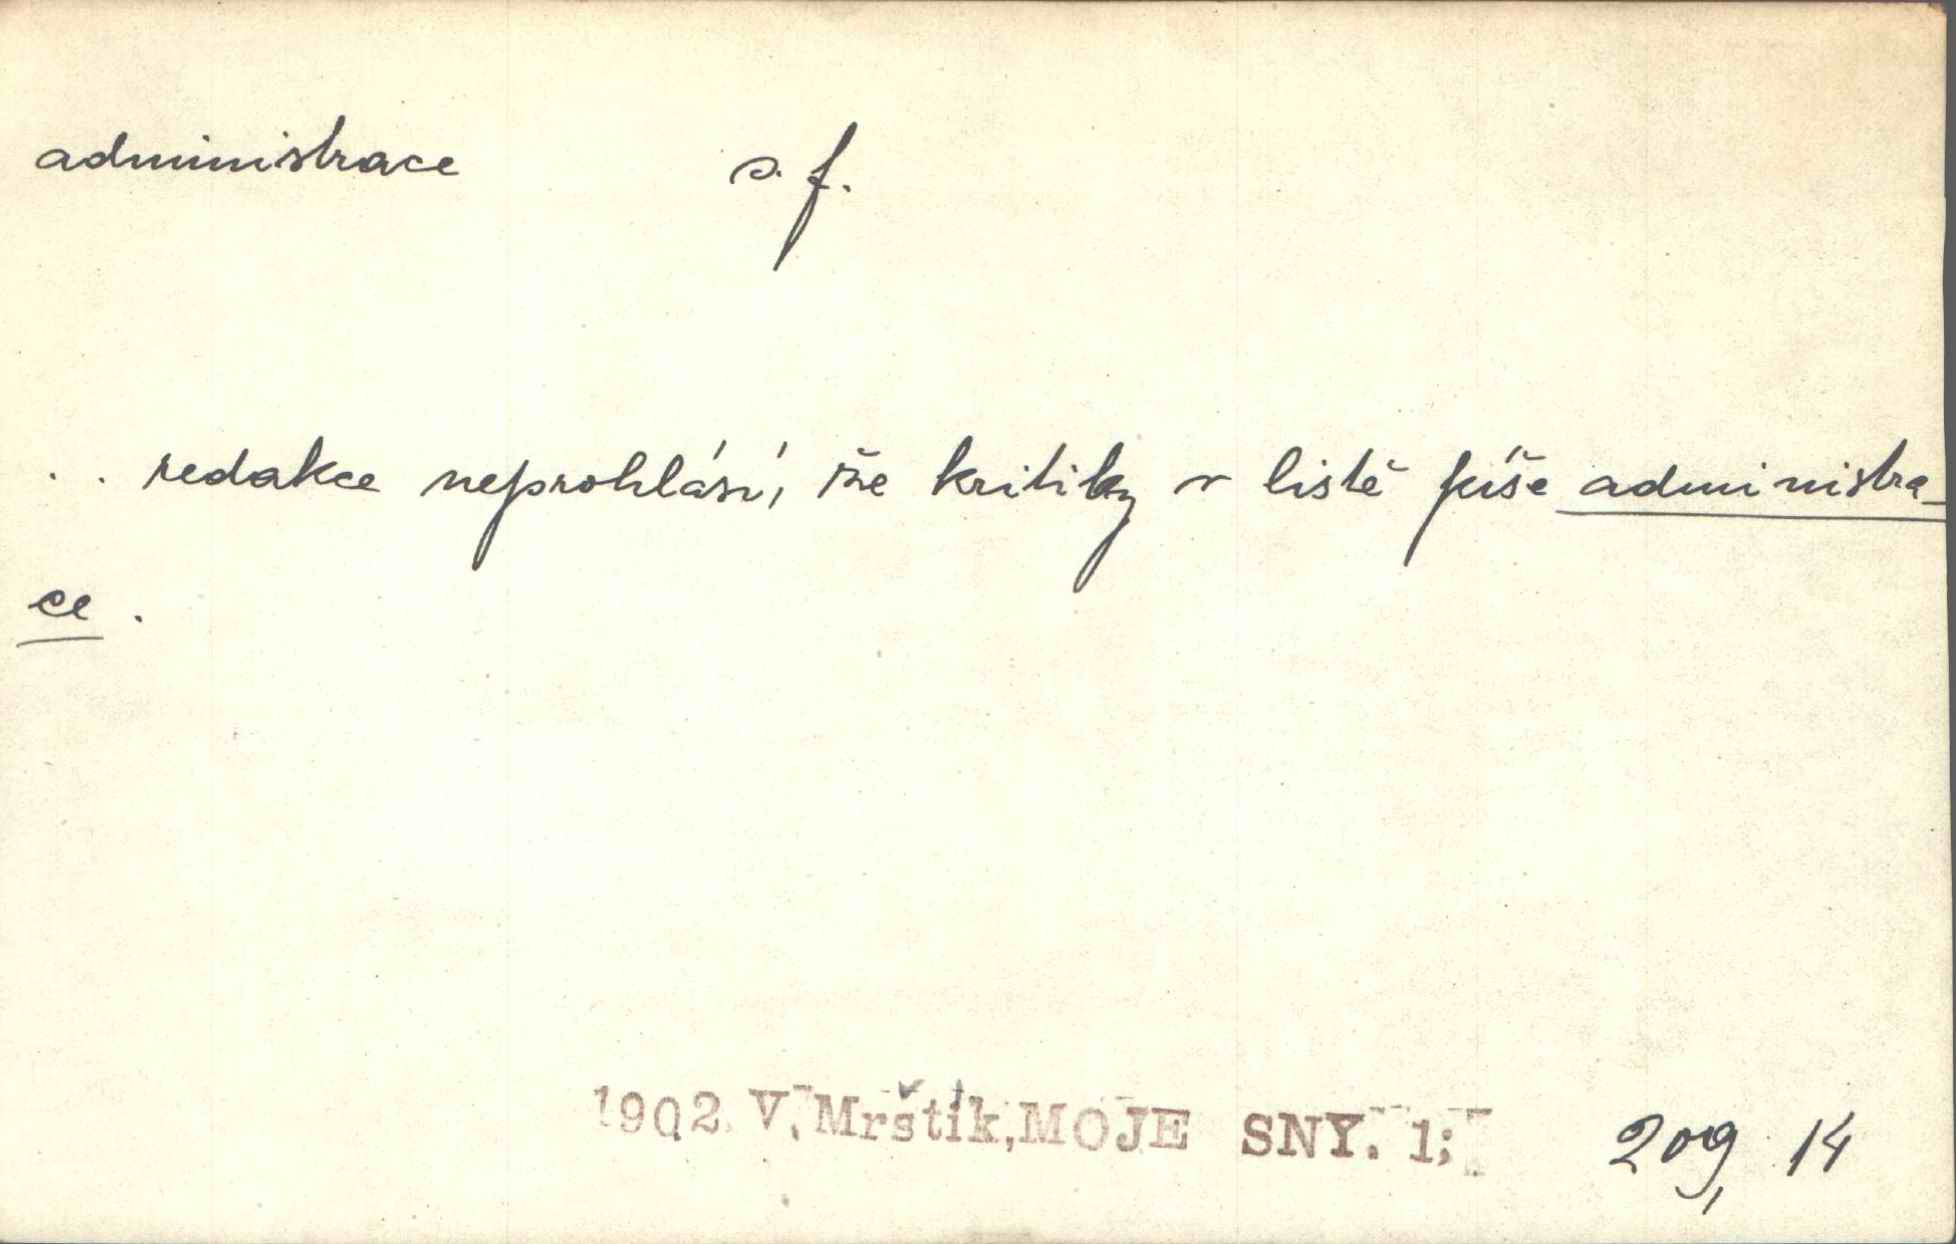 administrace s. f.
. . redakce neprohlásí, že kritiky v listě píše administra-
ce.
1902 V. Mrštík, MOJE SNY. 1; 209, 14